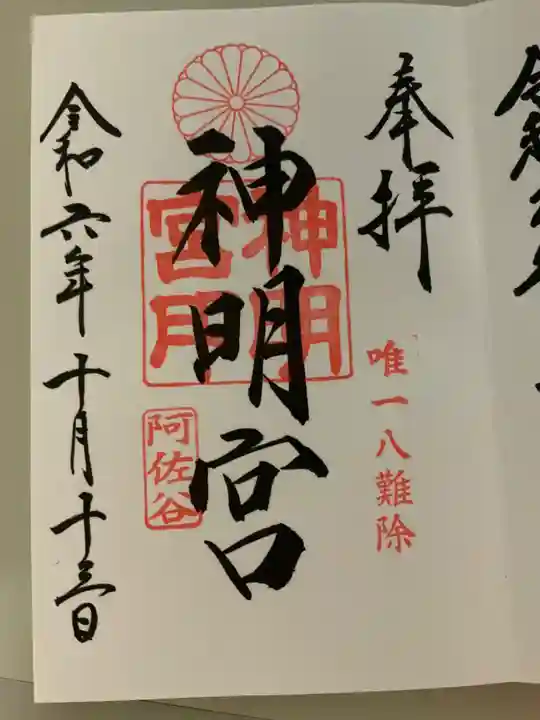 奉拝
唯一八難除
神明宮
神明
宮
阿佐谷
令和六年十月十三日